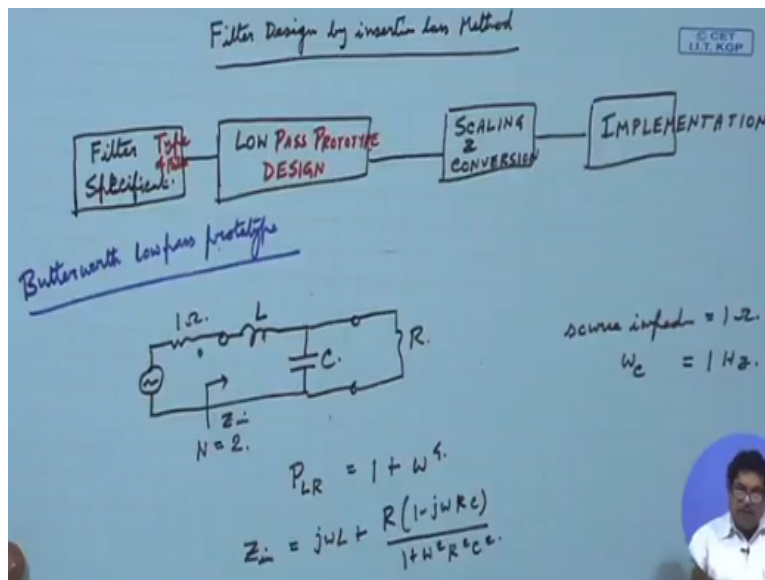 Filter Design by insertion loss Method
© CET
I.I.T. KGP
Filter Type
Specificati.
LOW PASS PROTOTYPE
DESIGN
SCALING
&
CONVERSION
IMPLEMENTATION
Butterworth lowpass prototype
1Ω.
L
C.
R.
Zin
N = 2.
source imped = 1Ω.
Wc = 1 Hz.
PLR = 1 + ω⁴.
Zin = jωL + R(1-jωRC)
1+ω²R²C².